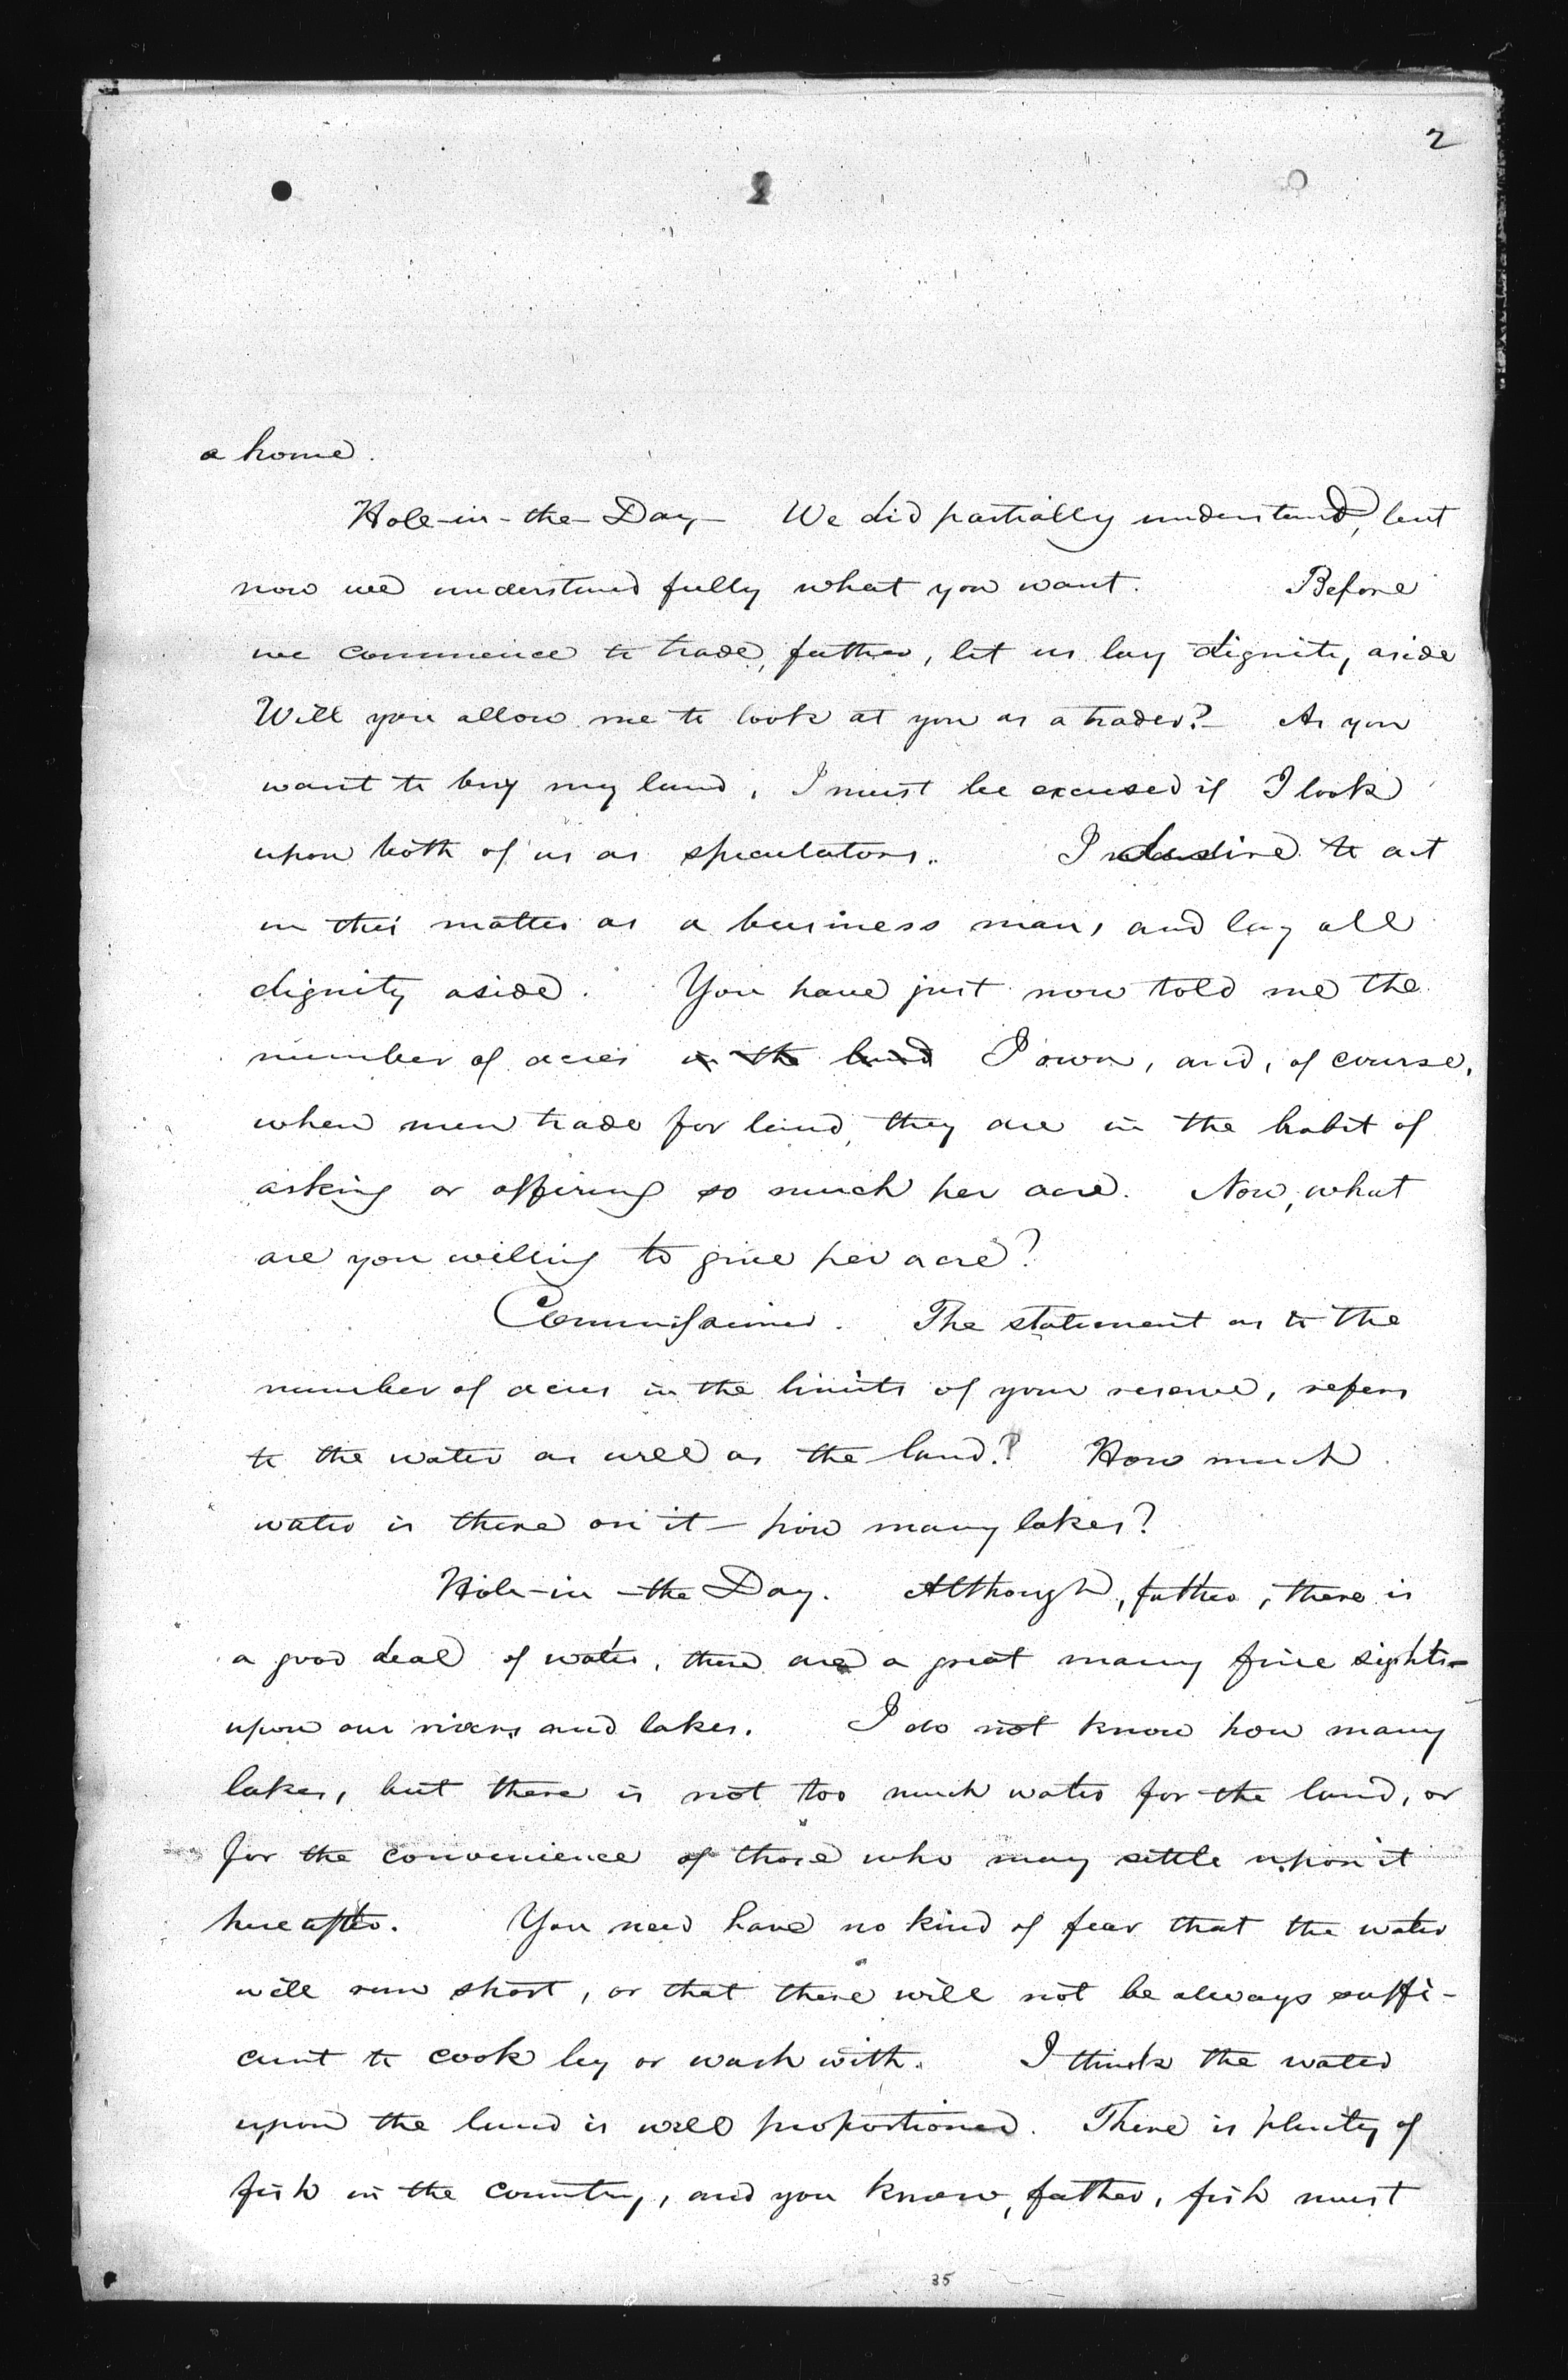 2
2
a home.
Hole-in-the-Day- We did partially understand, but
now we understand fully what you want. Before
we commence to trade, father, let us lay dignity aside
Will you allow me to look at you as a trader?- As you
want to buy my land, I must be excused if I look
upon both of us as speculators. I desire to act
in this matter as a business man, and lay all
dignity aside. You have just now told me the
number of acres in the land I own, and, of course,
when men trade for land, they are in the habit of
asking or offering so much per acre. Now, what
are you willing to give per acre?
Commissioner. The statement as to the
number of acres in the limits of your reserve, refers
to the water as well as the land? How much
water is there on it - how many lakes?
Hole-in-the Day. Although, father, there is
a good deal of water, there are a great many fine sights-
upon our rivers and lakes. I do not know how many
lakes, but there is not too much water for the land, or
for the convenience of those who may settle upon it
hereafter. You need have no kind of fear that the water
will run short, or that there will not be always suffi-
cient to cook by or wash with. I think the water
upon the land is well proportioned. There is plenty of
fish in the country, and you know, father, fish must
35